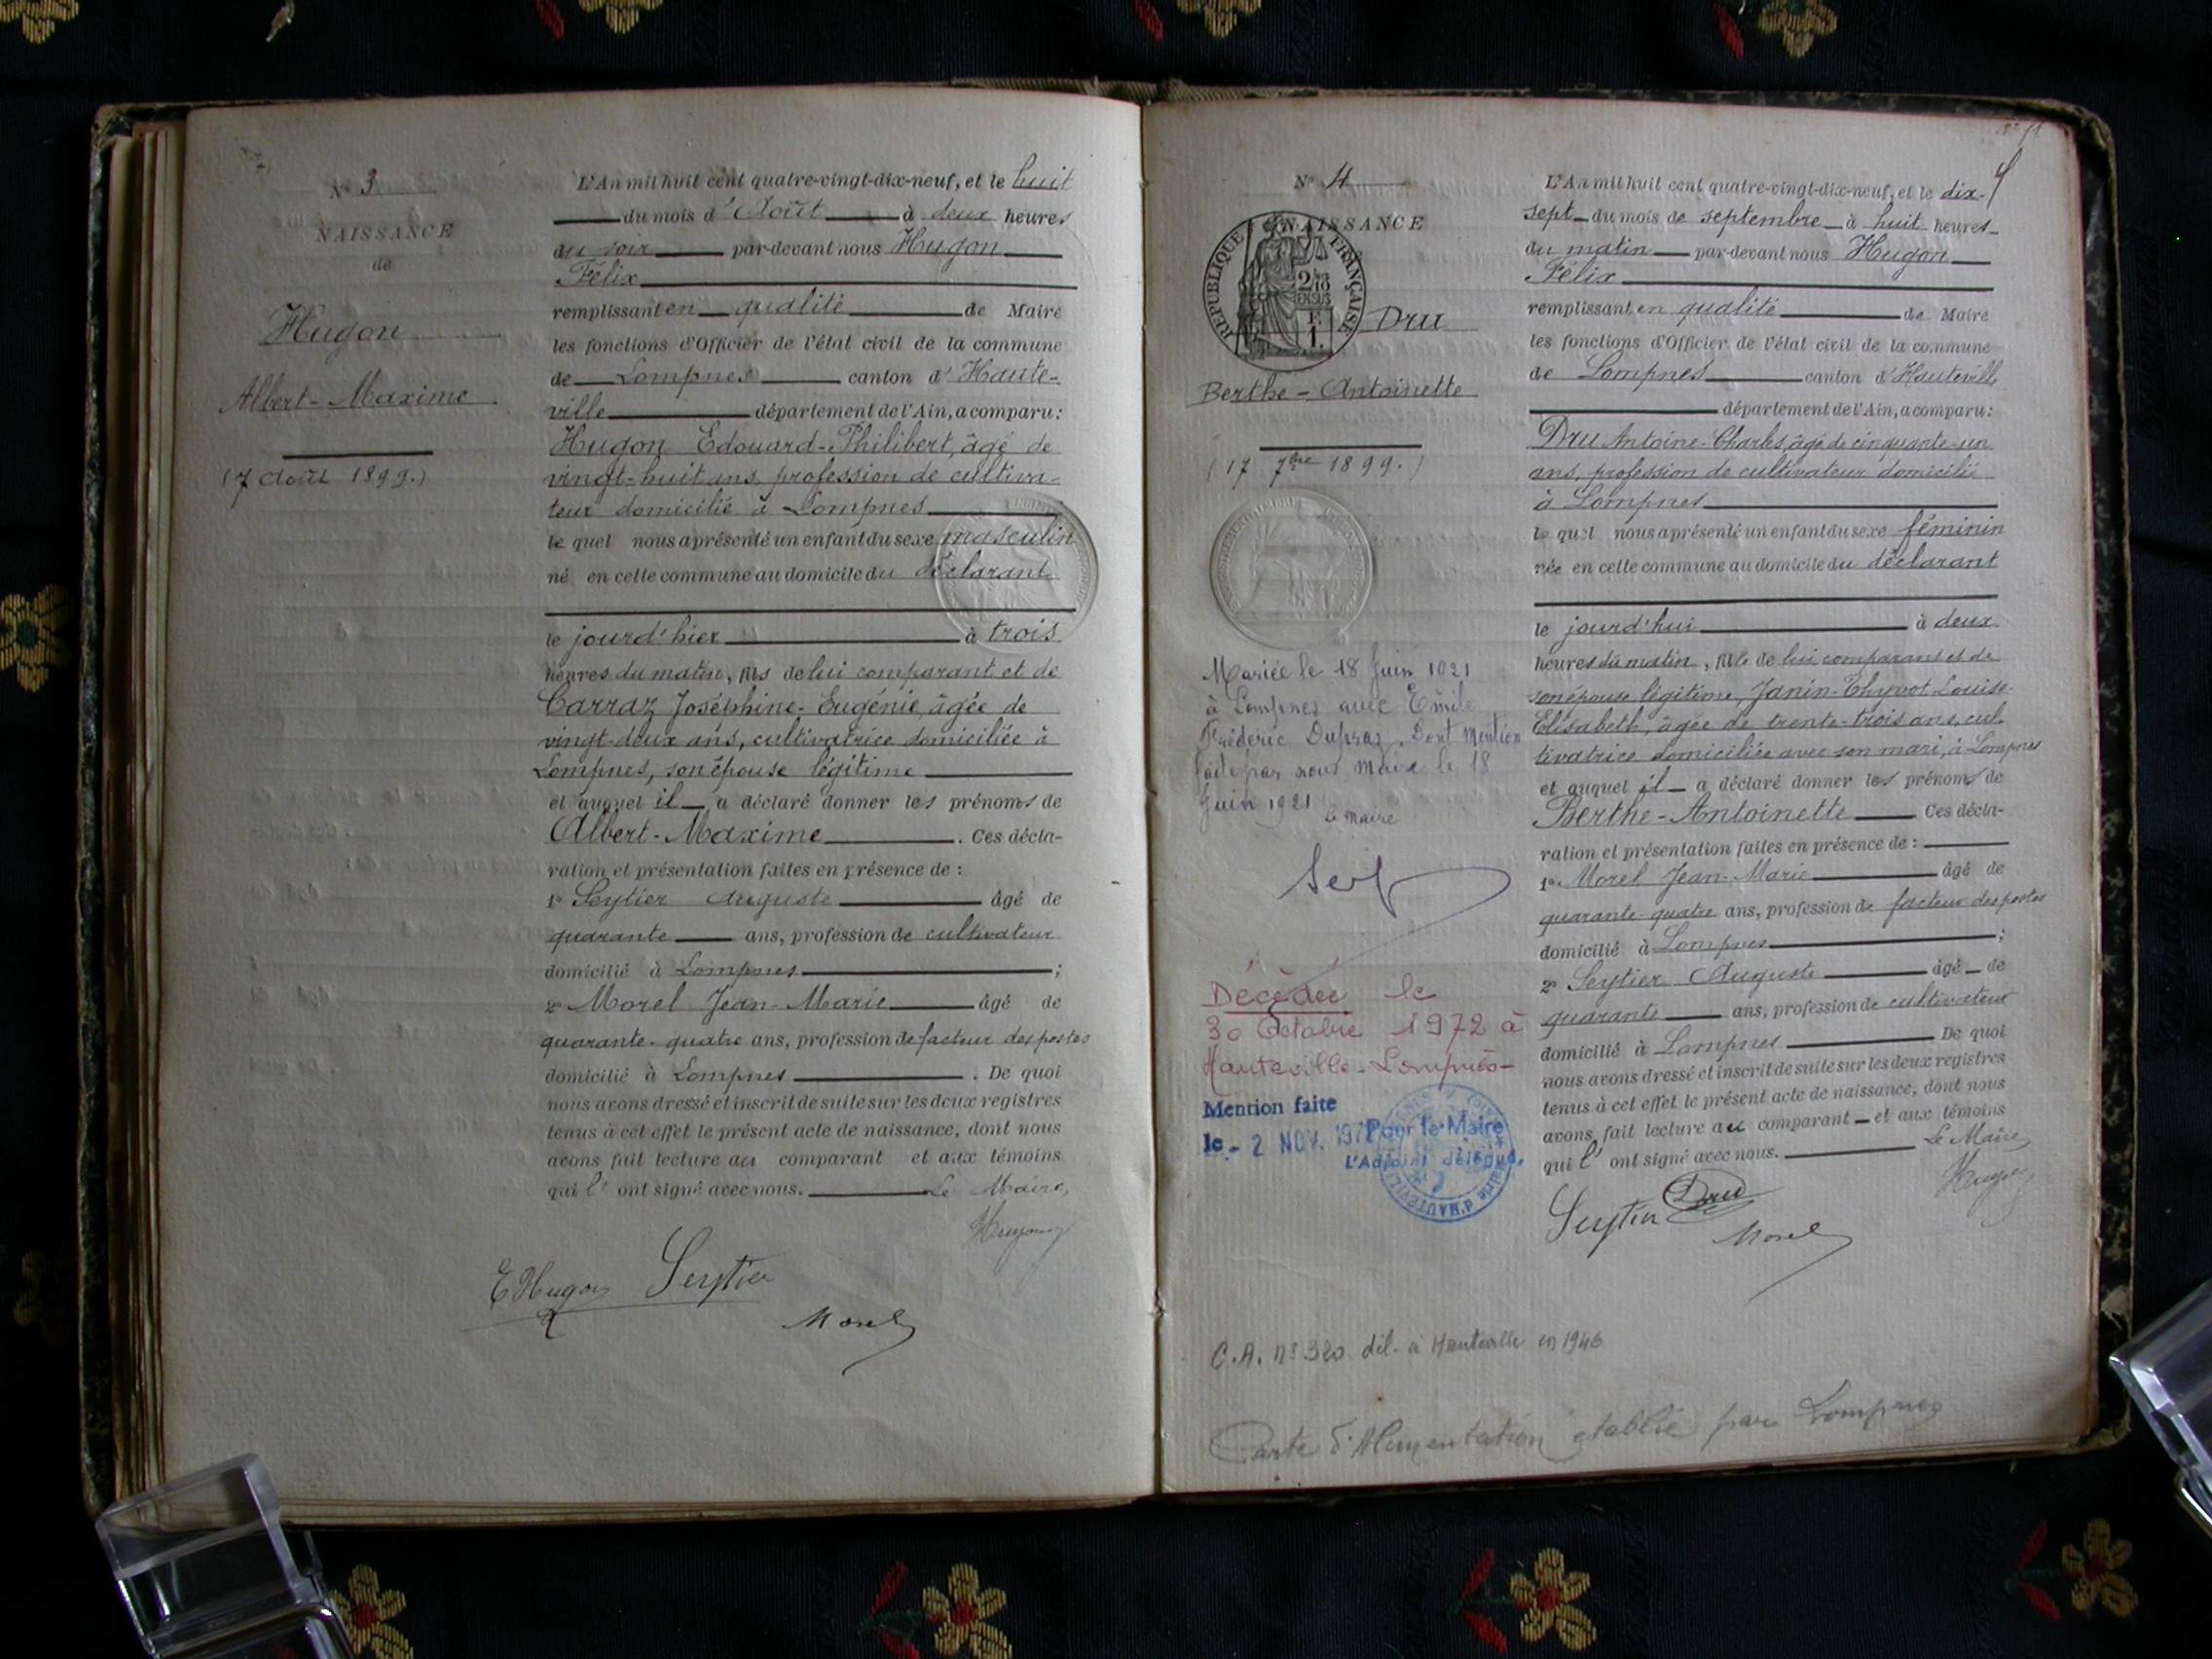 N° 3
NAISSANCE
de
Hugon
Albert-Maxime
(7 Août 1899.)
L'An mil huit cent quatre-vingt-dix-neuf, et le huit
du mois d'Août à deux heures
du soir par-devant nous Hugon
Félix
remplissant en qualité de Maire
les fonctions d'Officier de l'état civil de la commune
de Lompnes canton d'Haute-
ville département de l'Ain, a comparu:
Hugon Edouard-Philibert, âgé de
vingt-huit ans, profession de cultiva-
teur domicilié à Lompnes
le quel nous a présenté un enfant du sexe masculin
né en cette commune au domicile du déclarant
le jourd'hier à trois
heures du matin, fils de lui comparant et de
Carraz Joséphine-Eugénie, âgée de
vingt-deux ans, cultivatrice domiciliée à
Lompnes, son épouse légitime
et auquel il a déclaré donner les prénoms de
Albert-Maxime. Ces décla-
ration et présentation faites en présence de:
1° Seytier Auguste âgé de
quarante ans, profession de cultivateur
domicilié à Lompnes;
2° Morel Jean-Marie âgé de
quarante-quatre ans, profession de facteur des postes
domicilié à Lompnes. De quoi
nous avons dressé et inscrit de suite sur les deux registres
tenus à cet effet le présent acte de naissance, dont nous
avons fait lecture au comparant et aux témoins
qui l'ont signé avec nous. Le Maire,
Hugon
E Hugon Seytier
Morel
N° 4
NAISSANCE
REPUBLIQUE FRANÇAISE
2/10
EN SUS
F.
1.
Dru
Berthe-Antoinette
(17 7bre 1899.)
Mariée le 18 Juin 1921
à Lompnes avec Emile
Fréderic Dupraz. Dont mention
faite par nous Maire le 18
Juin 1921
Le maire
Décédée le
30 Octobre 1972 à
Hauteville-Lompnès-
Mention faite
le - 2 NOV. 1972
Pour le Maire
L'Adjoint délégué,
L'An mil huit cent quatre-vingt-dix-neuf, et le dix-
sept du mois de septembre à huit heures
du matin par-devant nous Hugon
Félix
remplissant en qualité de Maire
les fonctions d'Officier de l'état civil de la commune
de Lompnes canton d'Hauteville
département de l'Ain, a comparu:
Dru Antoine-Charles, âgé de cinquante-un
ans, profession de cultivateur domicilié
à Lompnes
le quel nous a présenté un enfant du sexe féminin
née en cette commune au domicile du déclarant
le jourd'hui à deux
heures du matin, fille de lui comparant et de
son épouse légitime, Janin-Thyvot Louise-
Elisabeth, âgée de trente-trois ans, cul-
tivatrice domiciliée avec son mari, à Lompnes
et auquel il a déclaré donner les prénoms de
Berthe-Antoinette Ces décla-
ration et présentation faites en présence de:
1° Morel Jean-Marie âgé de
quarante-quatre ans, profession de facteur des postes
domicilié à Lompnes;
2° Seytier Auguste âgé de
quarante ans, profession de cultivateur
domicilié à Lompnes De quoi
nous avons dressé et inscrit de suite sur les deux registres
tenus à cet effet le présent acte de naissance, dont nous
avons fait lecture au comparant et aux témoins
qui l'ont signé avec nous. Le Maire,
Hugon
Seytier Dru
Morel
C.A. n° 320 dél. à Hauteville en 1946
Carte d'Alimentation établie par Lompnes